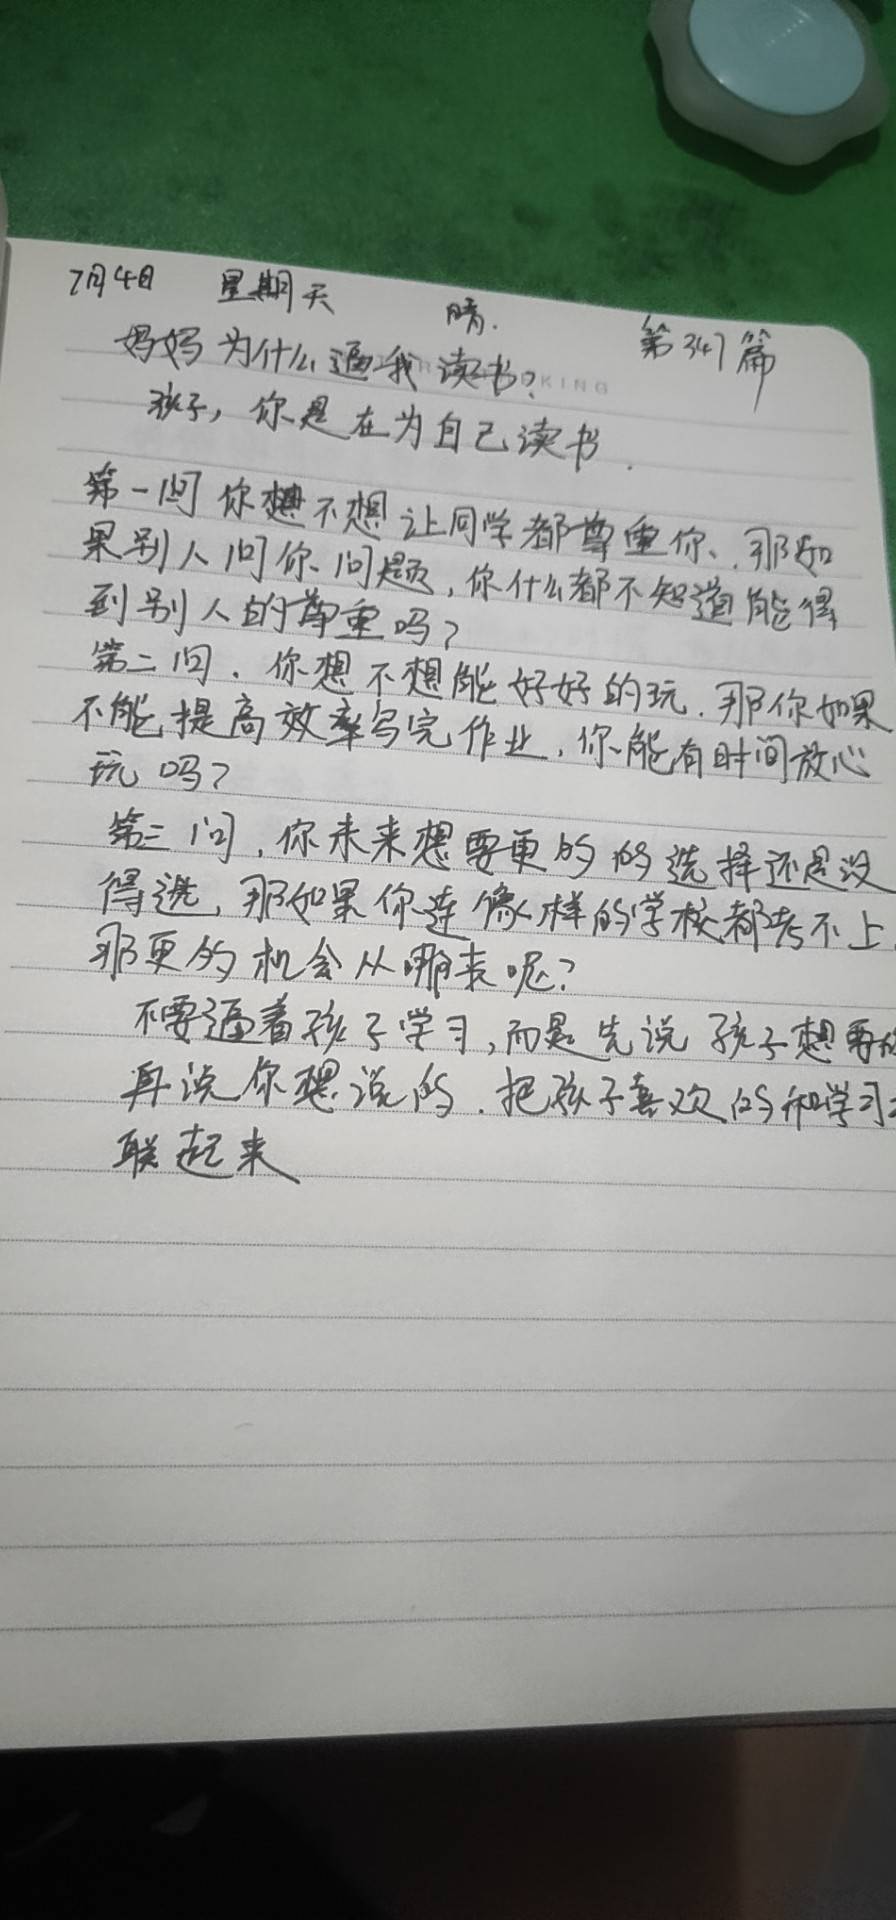 7月4日 星期天 晴. 第347篇
妈妈为什么逼我读书?
KING
孩子，你是在为自己读书.
第一问你想不想让同学都尊重你、那如
果别人问你问题，你什么都不知道能得
到别人的尊重吗?
第二问.你想不想能好好的玩.那你如果
不能提高效率写完作业，你能有时间放心
玩吗?
第三问，你未来想要更的的选择还是没
得选，那如果你连像样的学校都考不上，
那更的机会从哪来呢?
不要逼着孩子学习，而是先说孩子想要
再说你想说的.把孩子喜欢的和学习
联起来